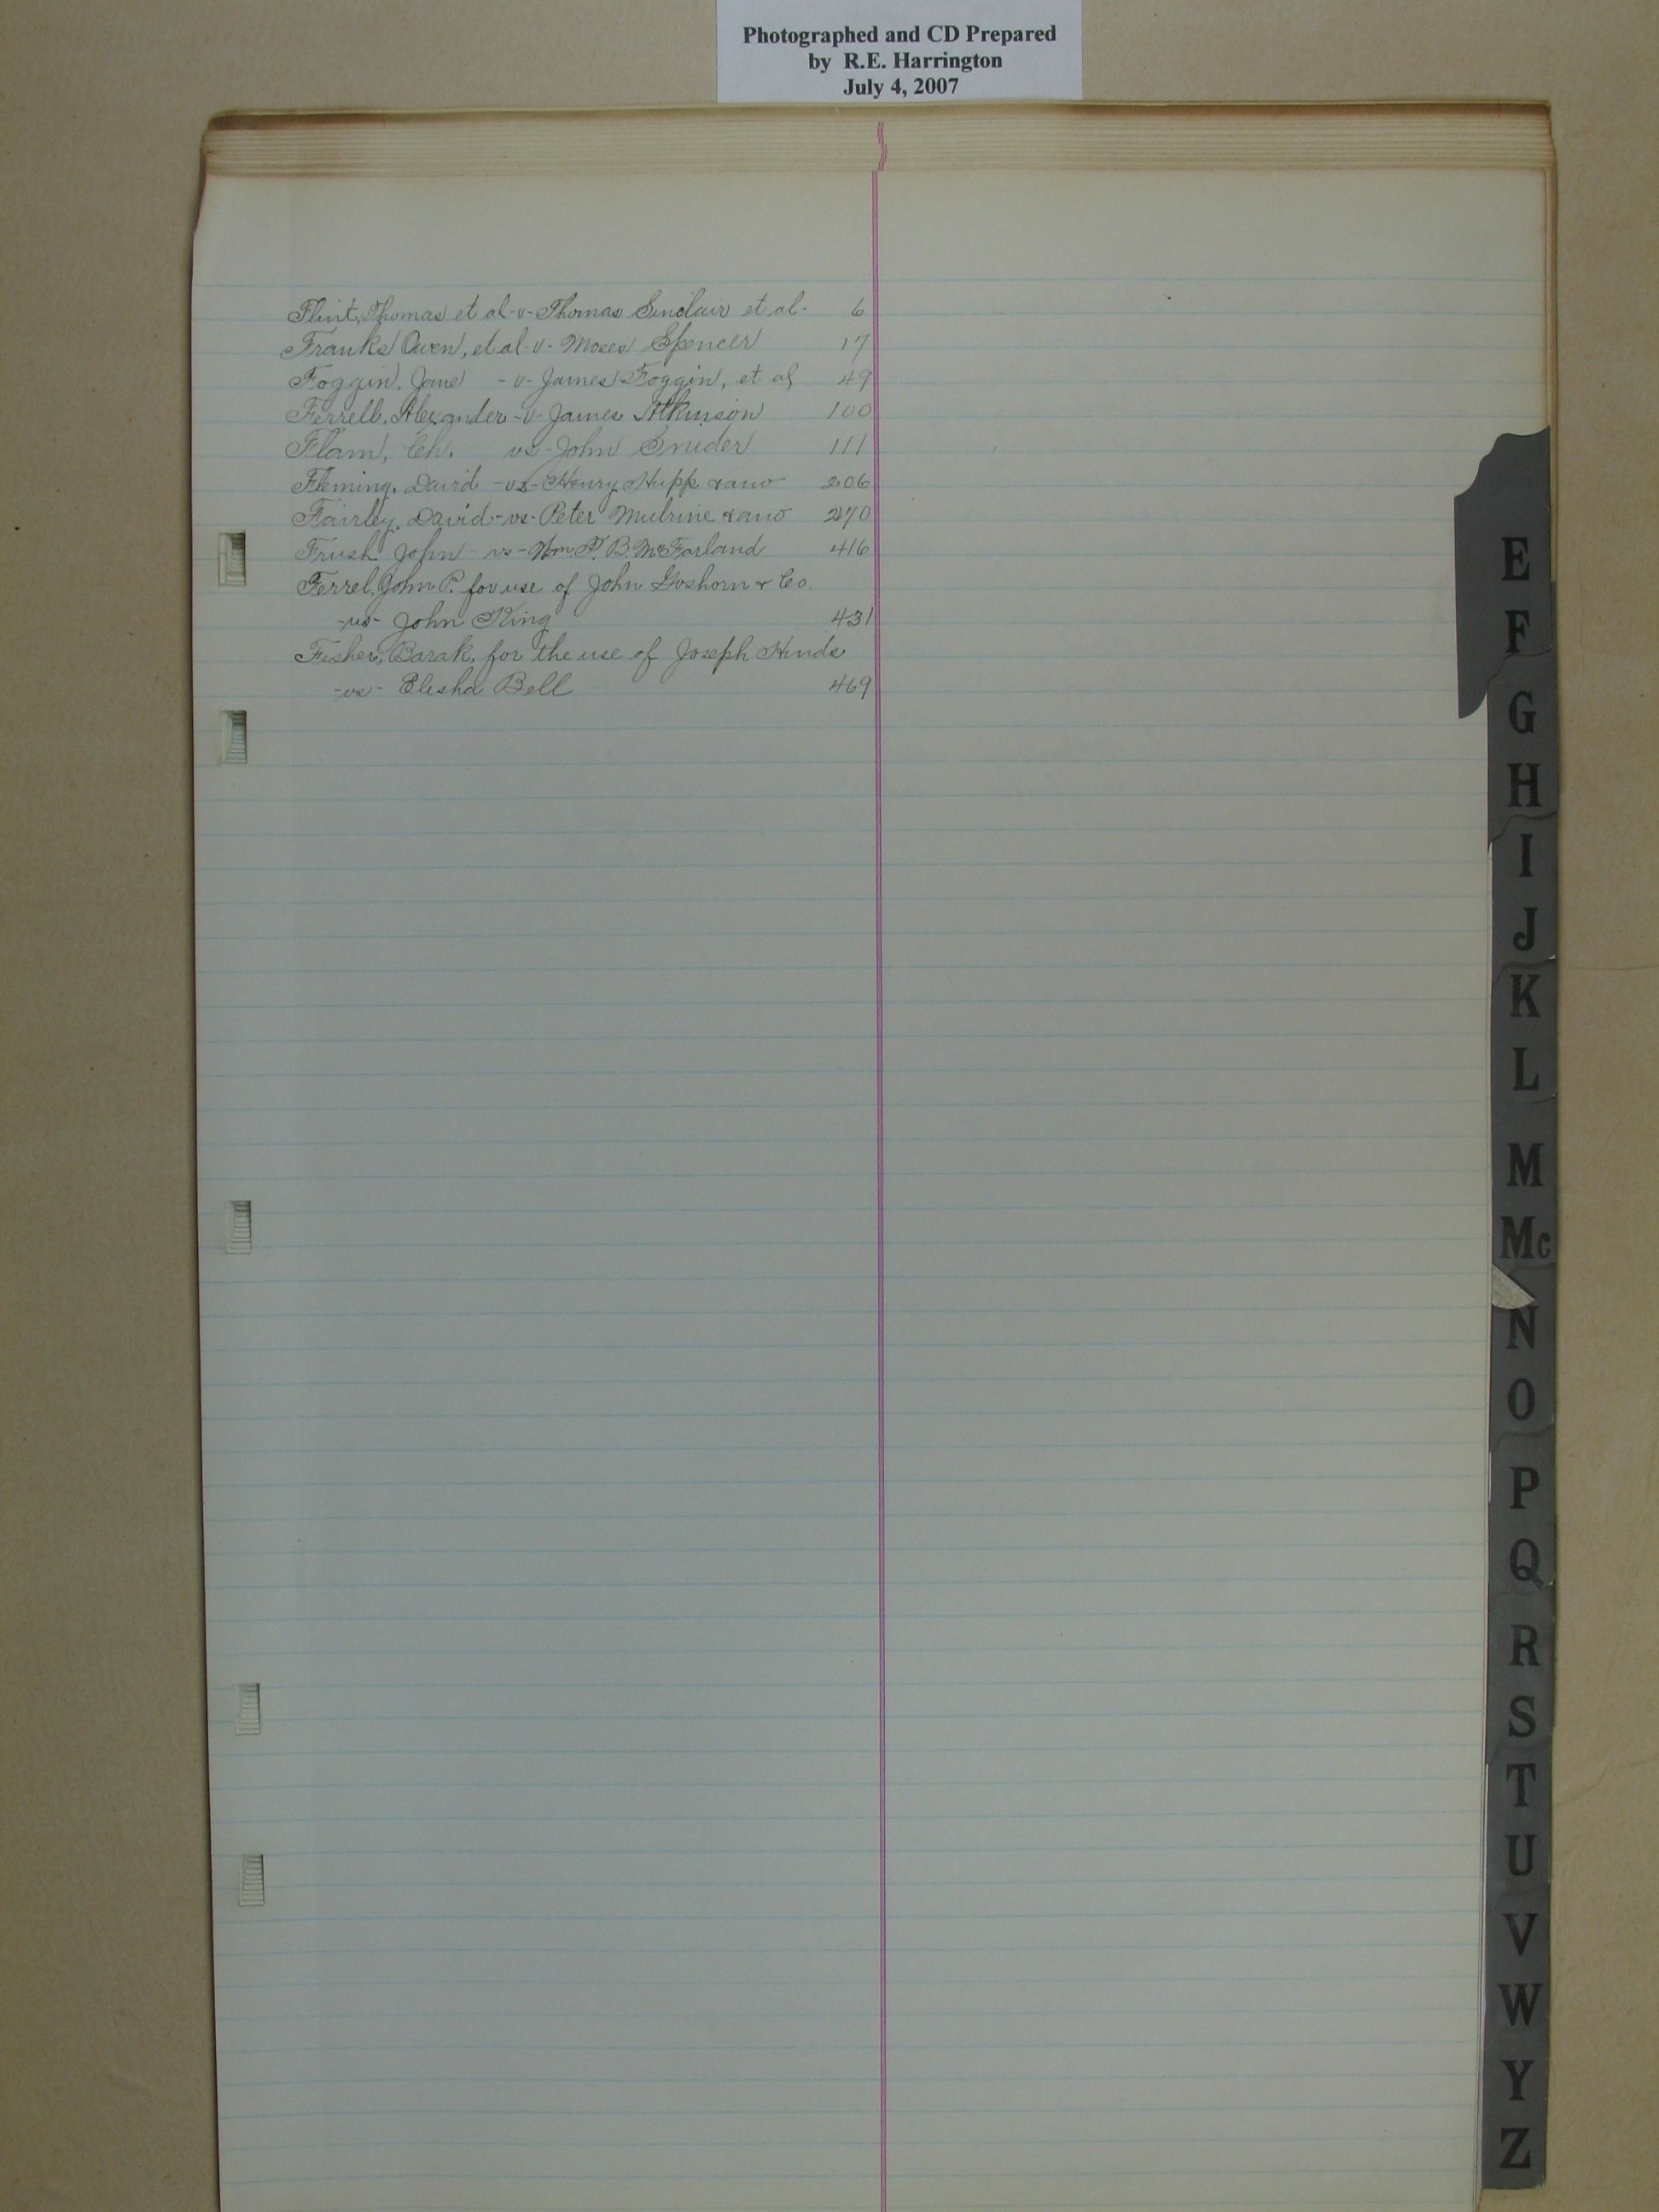 Photographed and CD Prepared
by R.E. Harrington
July 4, 2007
Flint, Thomas et al -v- Thomas Sinclair et al. 6
Franks Owen, et al -v- Moses Spencer 17
Foggin, Jane -v- James Foggin, et al 49
Ferrell, Alexander -v- James Atkinson 100
Flam, Ch. vs- John Snider 111
Fleming, David -vs- Henry Hupp & ano 206
Fairley, David -vs- Peter Mulrine & ano 270
Frush John -vs- Wm. P. B. McFarland 416
Ferrel, John P. for use of John Goshorn & Co.
-vs- John King 431
Fisher, Barak, for the use of Joseph Hinds
-vs- Elisha Bell 469
E
F
G
H
I
J
K
L
M
Mc
N
O
P
Q
R
S
T
U
V
W
Y
Z